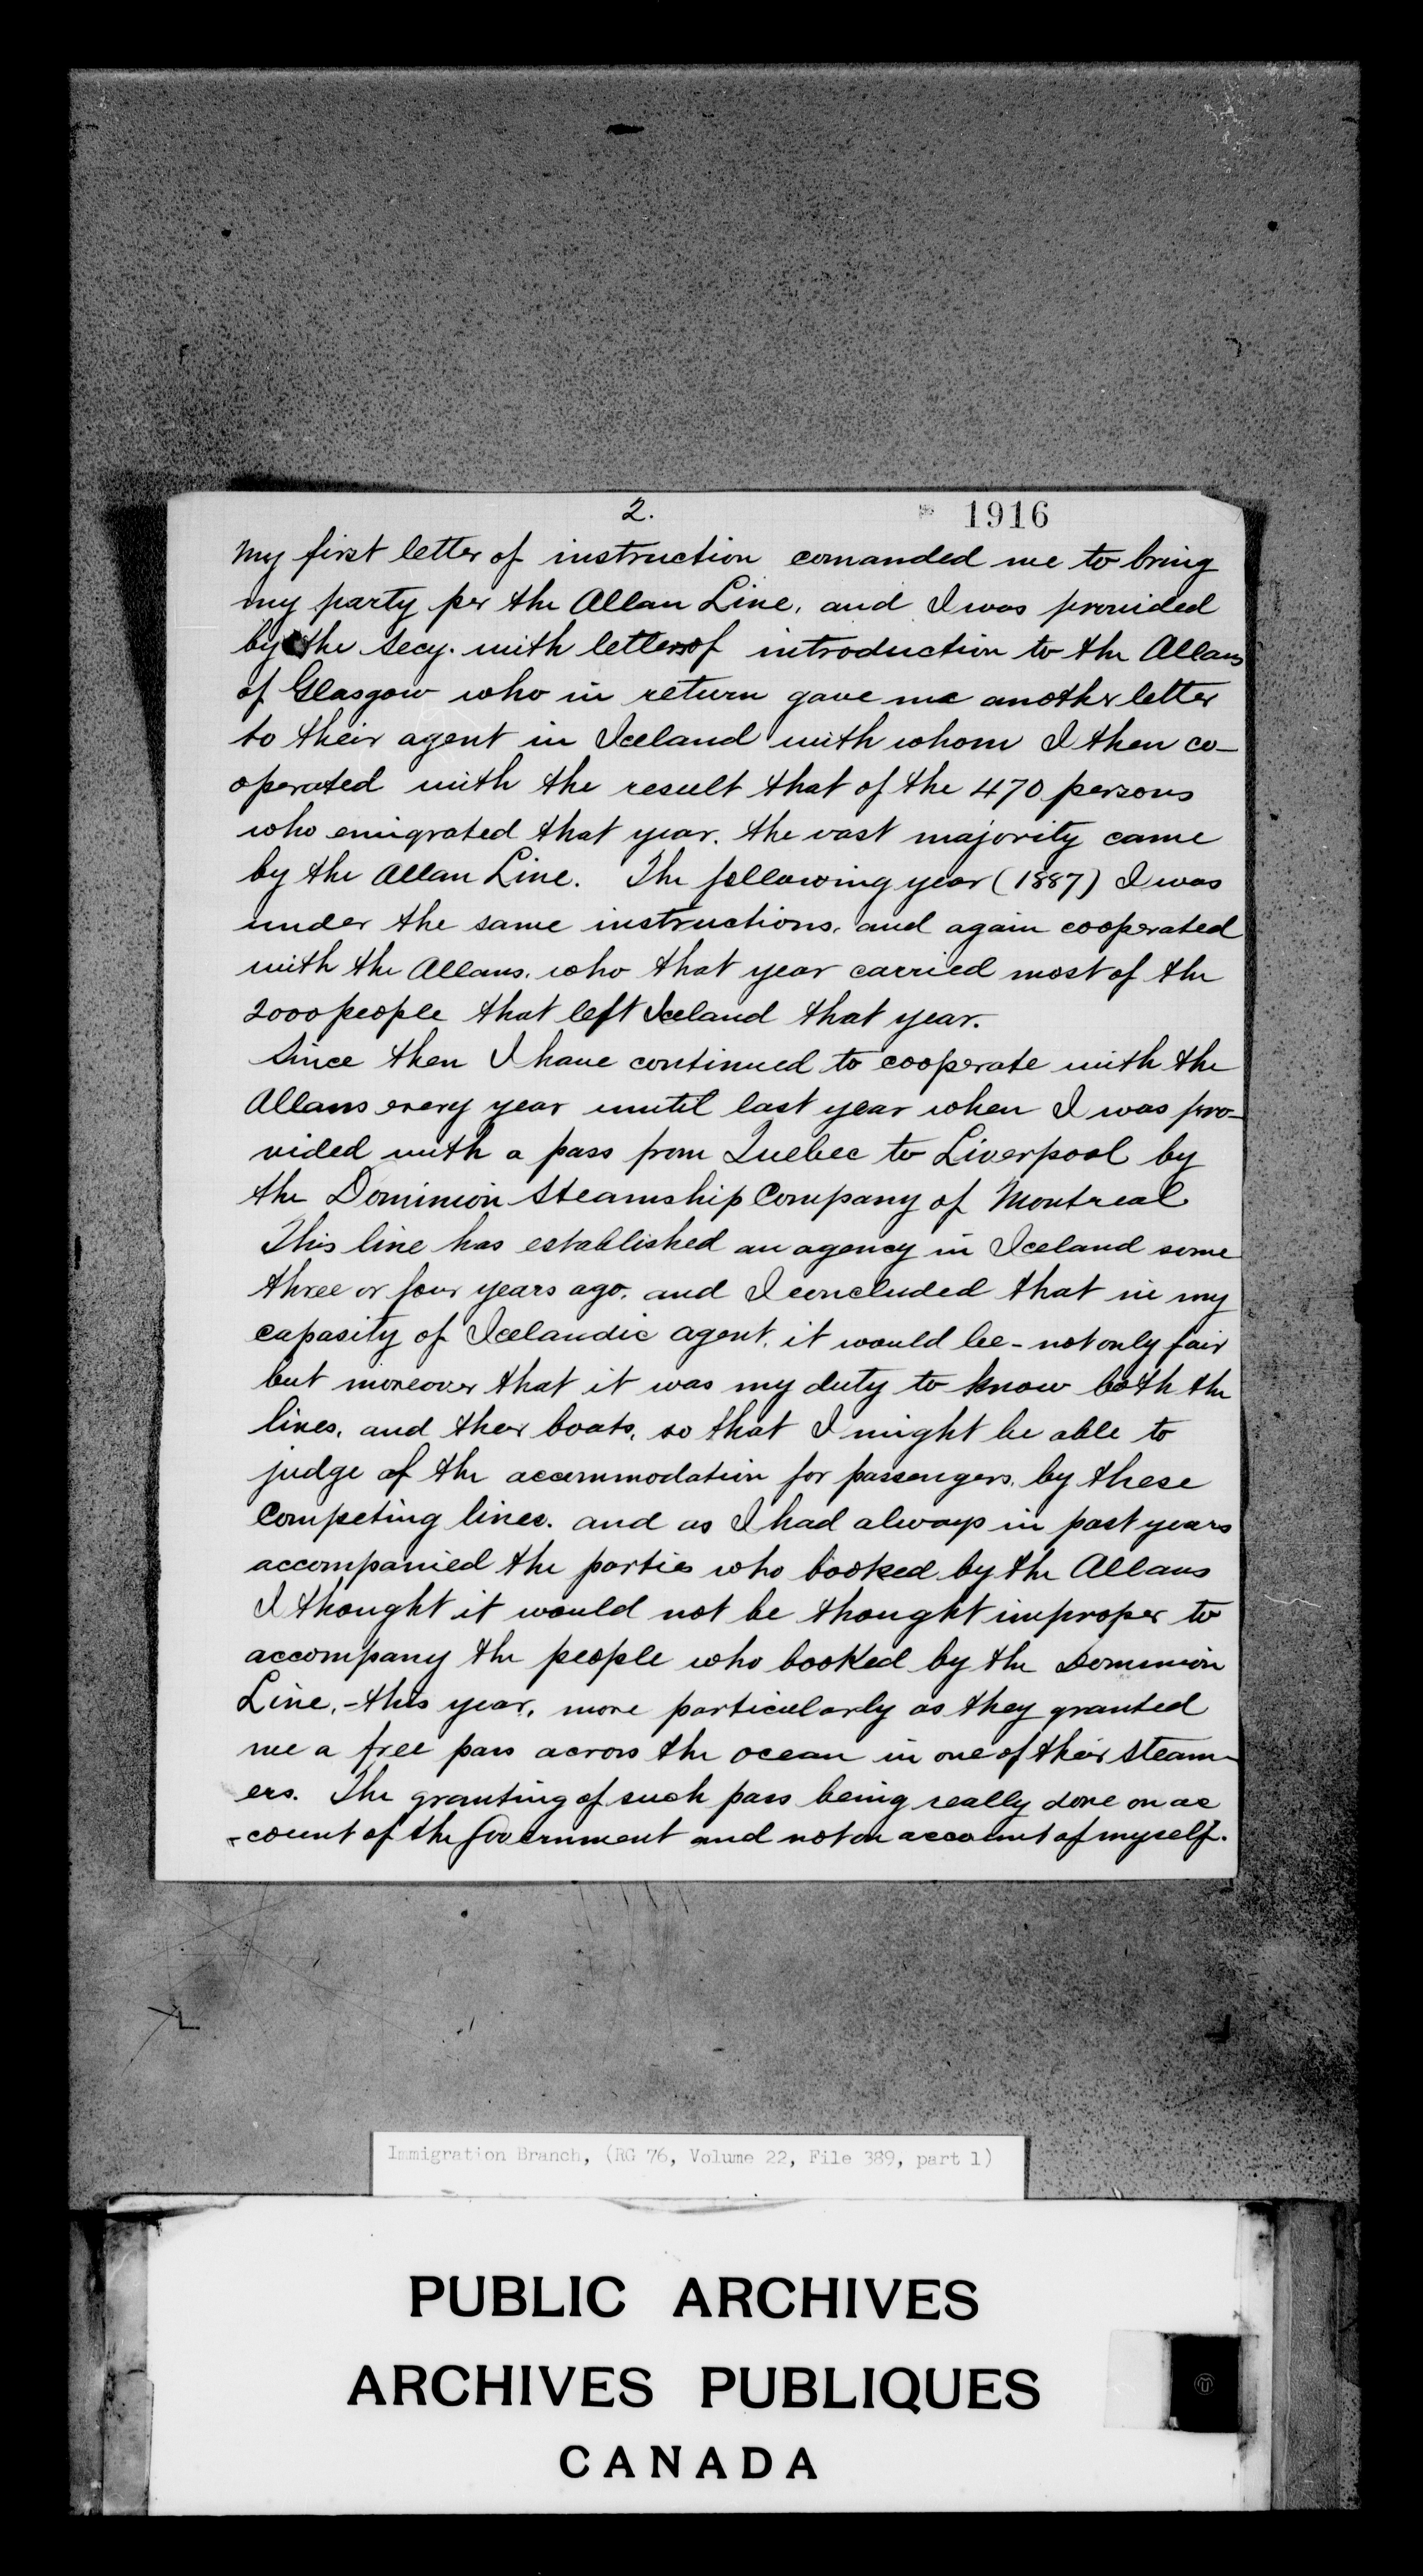 2.
1916
My first letter of instruction comanded me to bring
my party per the Allan Line, and I was provided
by the Secy. with letters of introduction to the Allans
of Glasgow who in return gave me another letter
to their agent in Iceland with whom I then co-
operated with the result that of the 470 persons
who emigrated that year. the vast majority came
by the Allan Line. The following year (1887) I was
under the same instructions, and again cooperated
with the Allans, who that year carried most of the
2000 people that left Iceland that year.
Since then I have continued to cooperate with the
Allans every year until last year when I was pro-
vided with a pass from Quebec to Liverpool by
the Dominion Steamship Company of Montreal
This line has established an agency in Iceland some
three or four years ago, and I concluded that in my
capasity of Icelandic agent, it would be - not only fair
but moreover that it was my duty to know both the
lines, and ther boats, so that I might be able to
judge of the accommodation for passengers, by these
Competing lines. and as I had always in past years
accompanied the parties who booked by the Allans
I thought it would not be thought improper to
accompany the people who booked by the Dominion
Line, - this year, more particularly as they granted
me a free pass across the ocean in one of their steam-
ers. The granting of such pass being really done on ac
-count of the Government and not on account of myself.
Immigration Branch, (RG 76, Volume 22, File 389, part 1)
PUBLIC ARCHIVES
ARCHIVES PUBLIQUES
CANADA